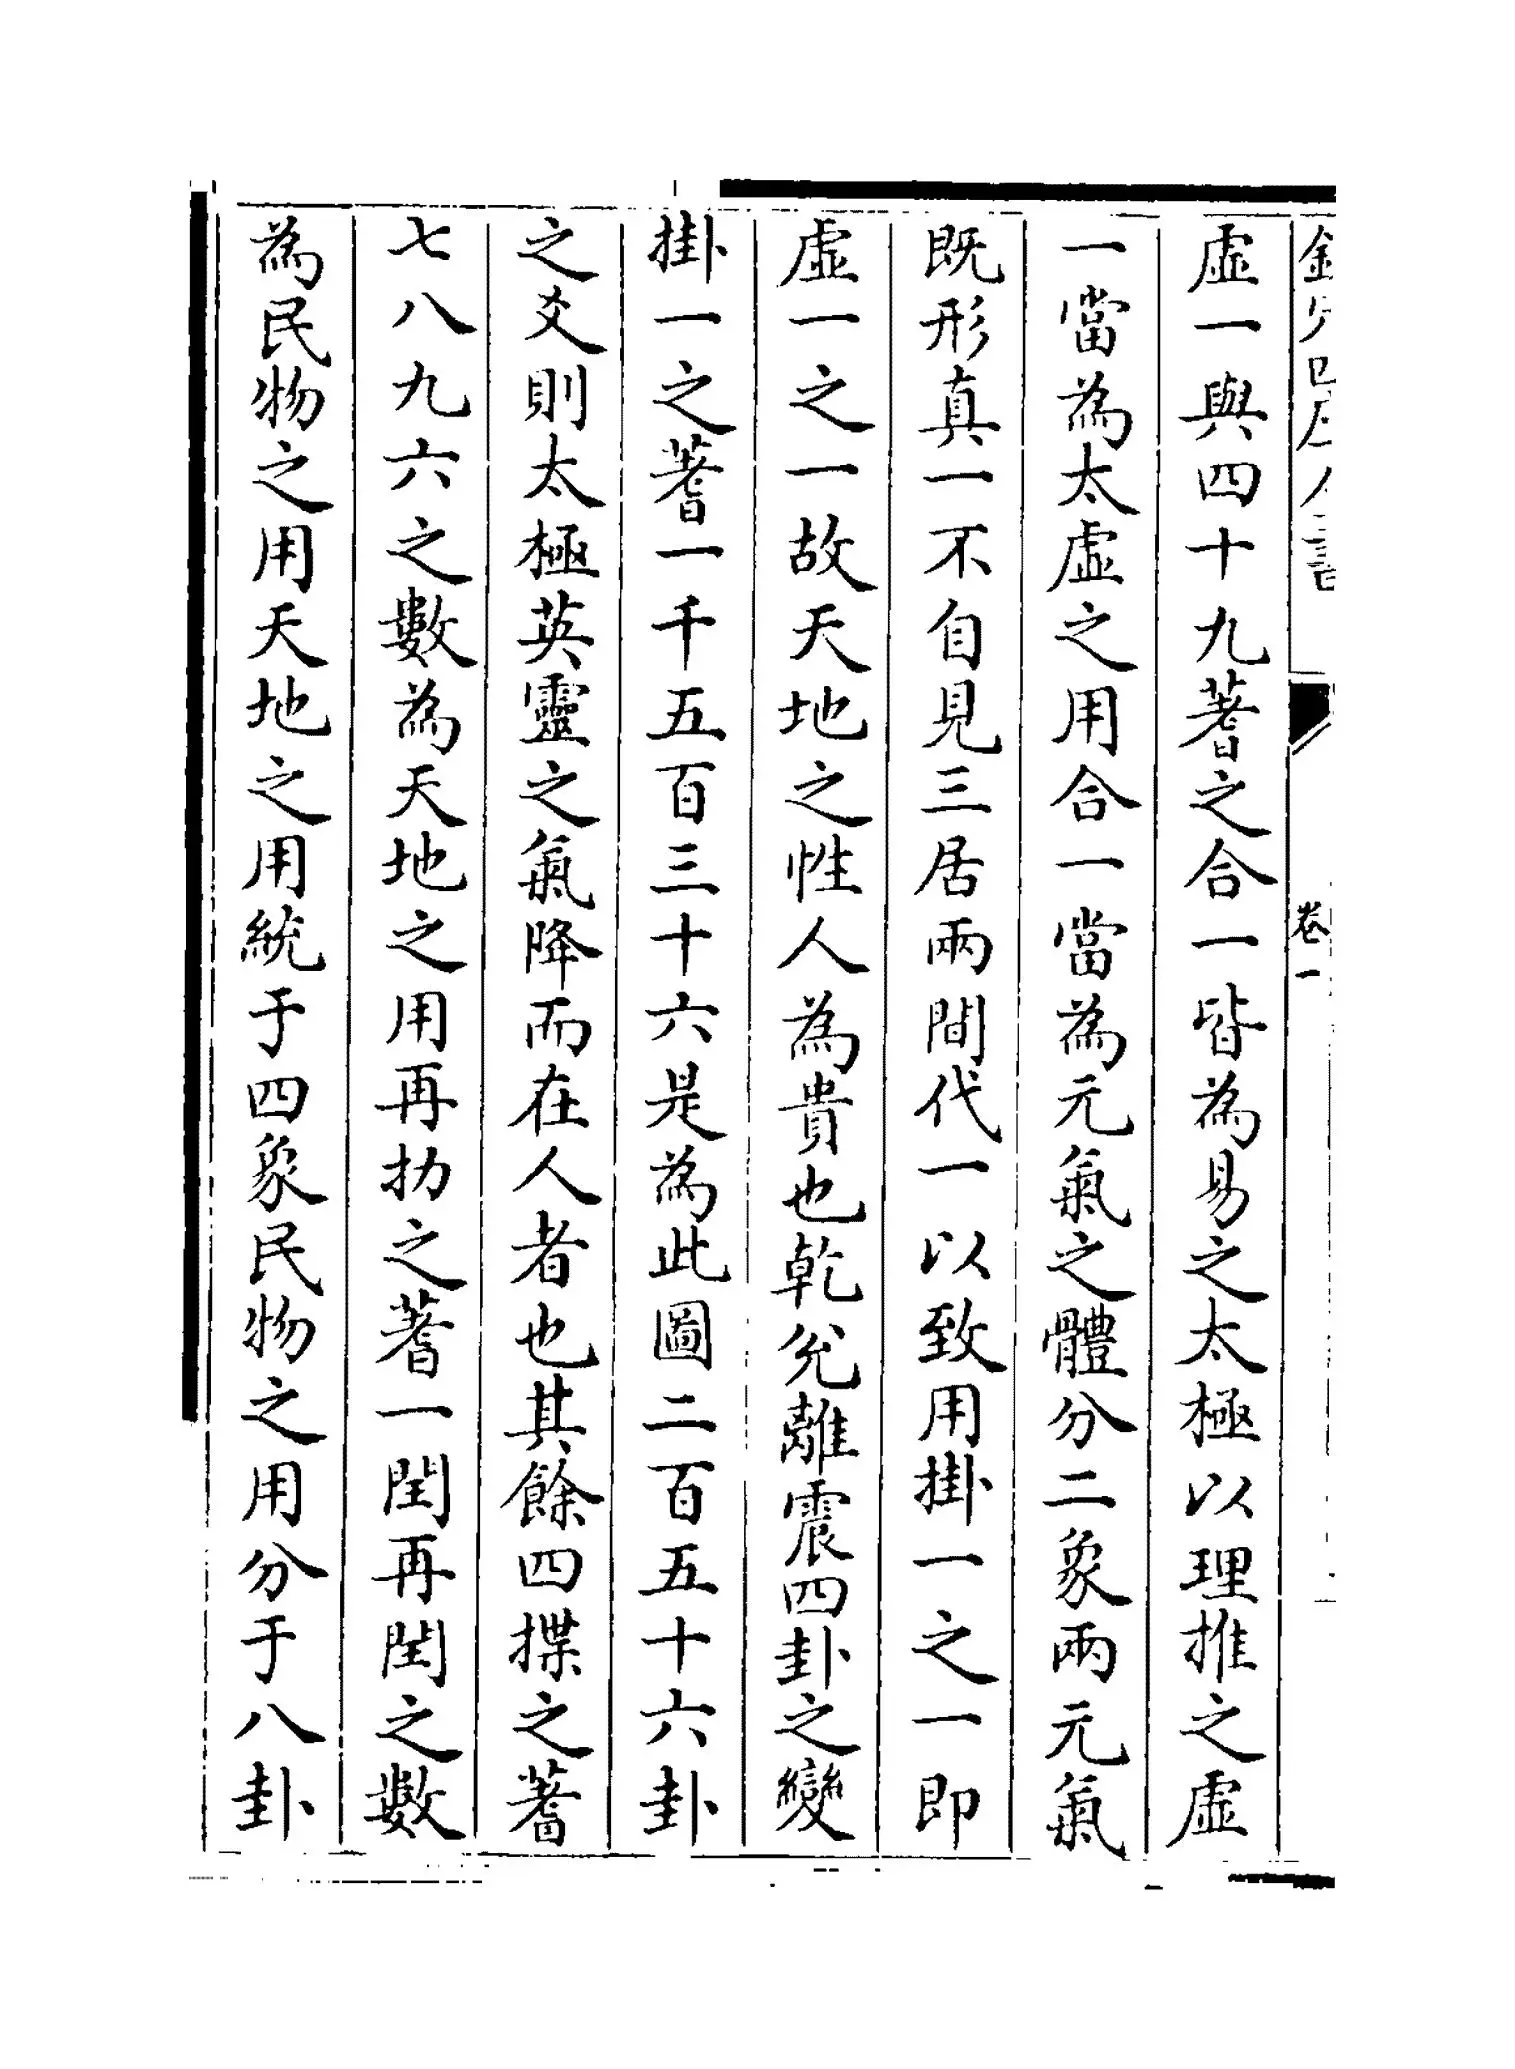 卷一
虛一與四十九蓍之合一皆為易之太極以理推之虛
一當為太虛之用合一當為元氣之體分二象兩元氣
既形真一不自見三居兩間代一以致用掛一之一即
虛一之一故天地之性人為貴也乾兌離震四卦之變
掛一之蓍一千五百三十六是為此圖二百五十六卦
之爻則太極英靈之氣降而在人者也其餘四揲之蓍
七八九六之數為天地之用再扐之蓍一閏再閏之數
為民物之用天地之用統于四象民物之用分于八卦